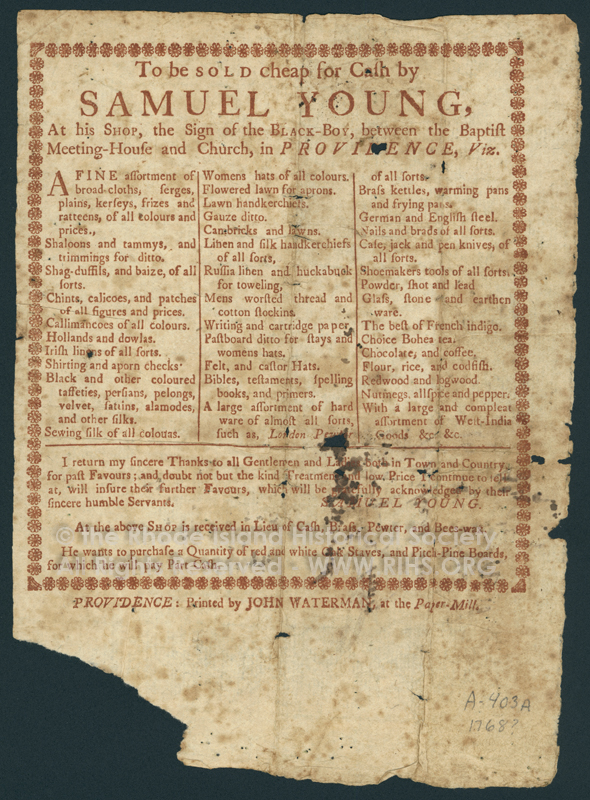 To be SOLD cheap for Cash by
SAMUEL YOUNG,
At his SHOP, the Sign of the BLACK-BOY, between the Baptist
Meeting-House and Church, in PROVIDENCE, Viz.
A FINE assortment of
broad-cloths, serges,
plains, kerseys, frizes and
ratteens, of all colours and
prices.,
Shaloons and tammys, and
trimmings for ditto.
Shag-duffils, and baize, of all
sorts.
Chints, calicoes, and patches
of all figures and prices.
Callimancoes of all colours.
Hollands and dowlas.
Irish linens of all sorts.
Shirting and aporn checks
Black and other coloured
taffeties, persians, pelongs,
velvet, sattins, alamodes,
and other silks.
Sewing silk of all colours.
Womens hats of all colours.
Flowered lawn for aprons.
Lawn handkerchiefs.
Gauze ditto.
Cambricks and lawns.
Linen and silk handkerchiefs
of all sorts,
Russia linen and huckabuck
for toweling,
Mens worsted thread and
cotton stockins.
Writing and cartridge paper,
Pastboard ditto for stays and
womens hats.
Felt, and castor Hats.
Bibles, testaments, spelling
books, and primers.
A large assortment of hard
ware of almost all sorts,
such as, London
of all sorts.
Brass kettles, warming pans
and frying pans.
German and English steel.
Nails and brads of all sorts.
Case, jack and pen knives, of
all sorts.
Shoemakers tools of all sorts.
Powder, shot and lead
Glass, stone and earthen
ware.
The best of French indigo.
Choice Bohea tea.
Chocolate, and coffee,
Flour, rice, and codfish.
Redwood and logwood.
Nutmegs, allspice and pepper.
With a large and compleat
assortment of West-India
Goods &c. &c.
I return my sincere Thanks to all Gentlemen and Ladies both in Town and Country
for past Favours; and doubt not but the kind Treatment and low Price I continue to sell
at, will insure their further Favours, which will be gratefully acknowledged by their
sincere humble Servant. SAMUEL YOUNG
At the above SHOP is received in Lieu of Cash, Brass, Pewter, and Bees-wax.
He wants to purchase a Quantity of red and white Oak Staves, and Pitch-Pine Boards,
for which he will pay Part Cash.
© the Rhode Island Historical Society
reserved - WWW.RIHS.ORG
PROVIDENCE: Printed by JOHN WATERMAN, at the Paper-Mill.
A-403A
1768?